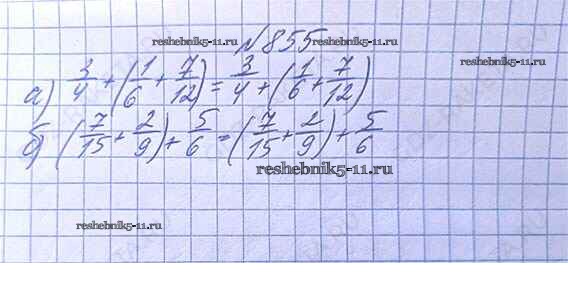 №855
reshebnik5-11.ru reshebnik5-11.ru
а) 3/4 + (1/6 + 7/12) = 3/4 + (1/6 + 7/12)
б) (7/15 + 2/9) + 5/6 = (7/15 + 2/9) + 5/6
reshebnik5-11.ru
reshebnik5-11.ru